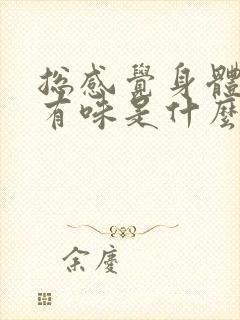 总感覺身體
有味是什麼
余慶